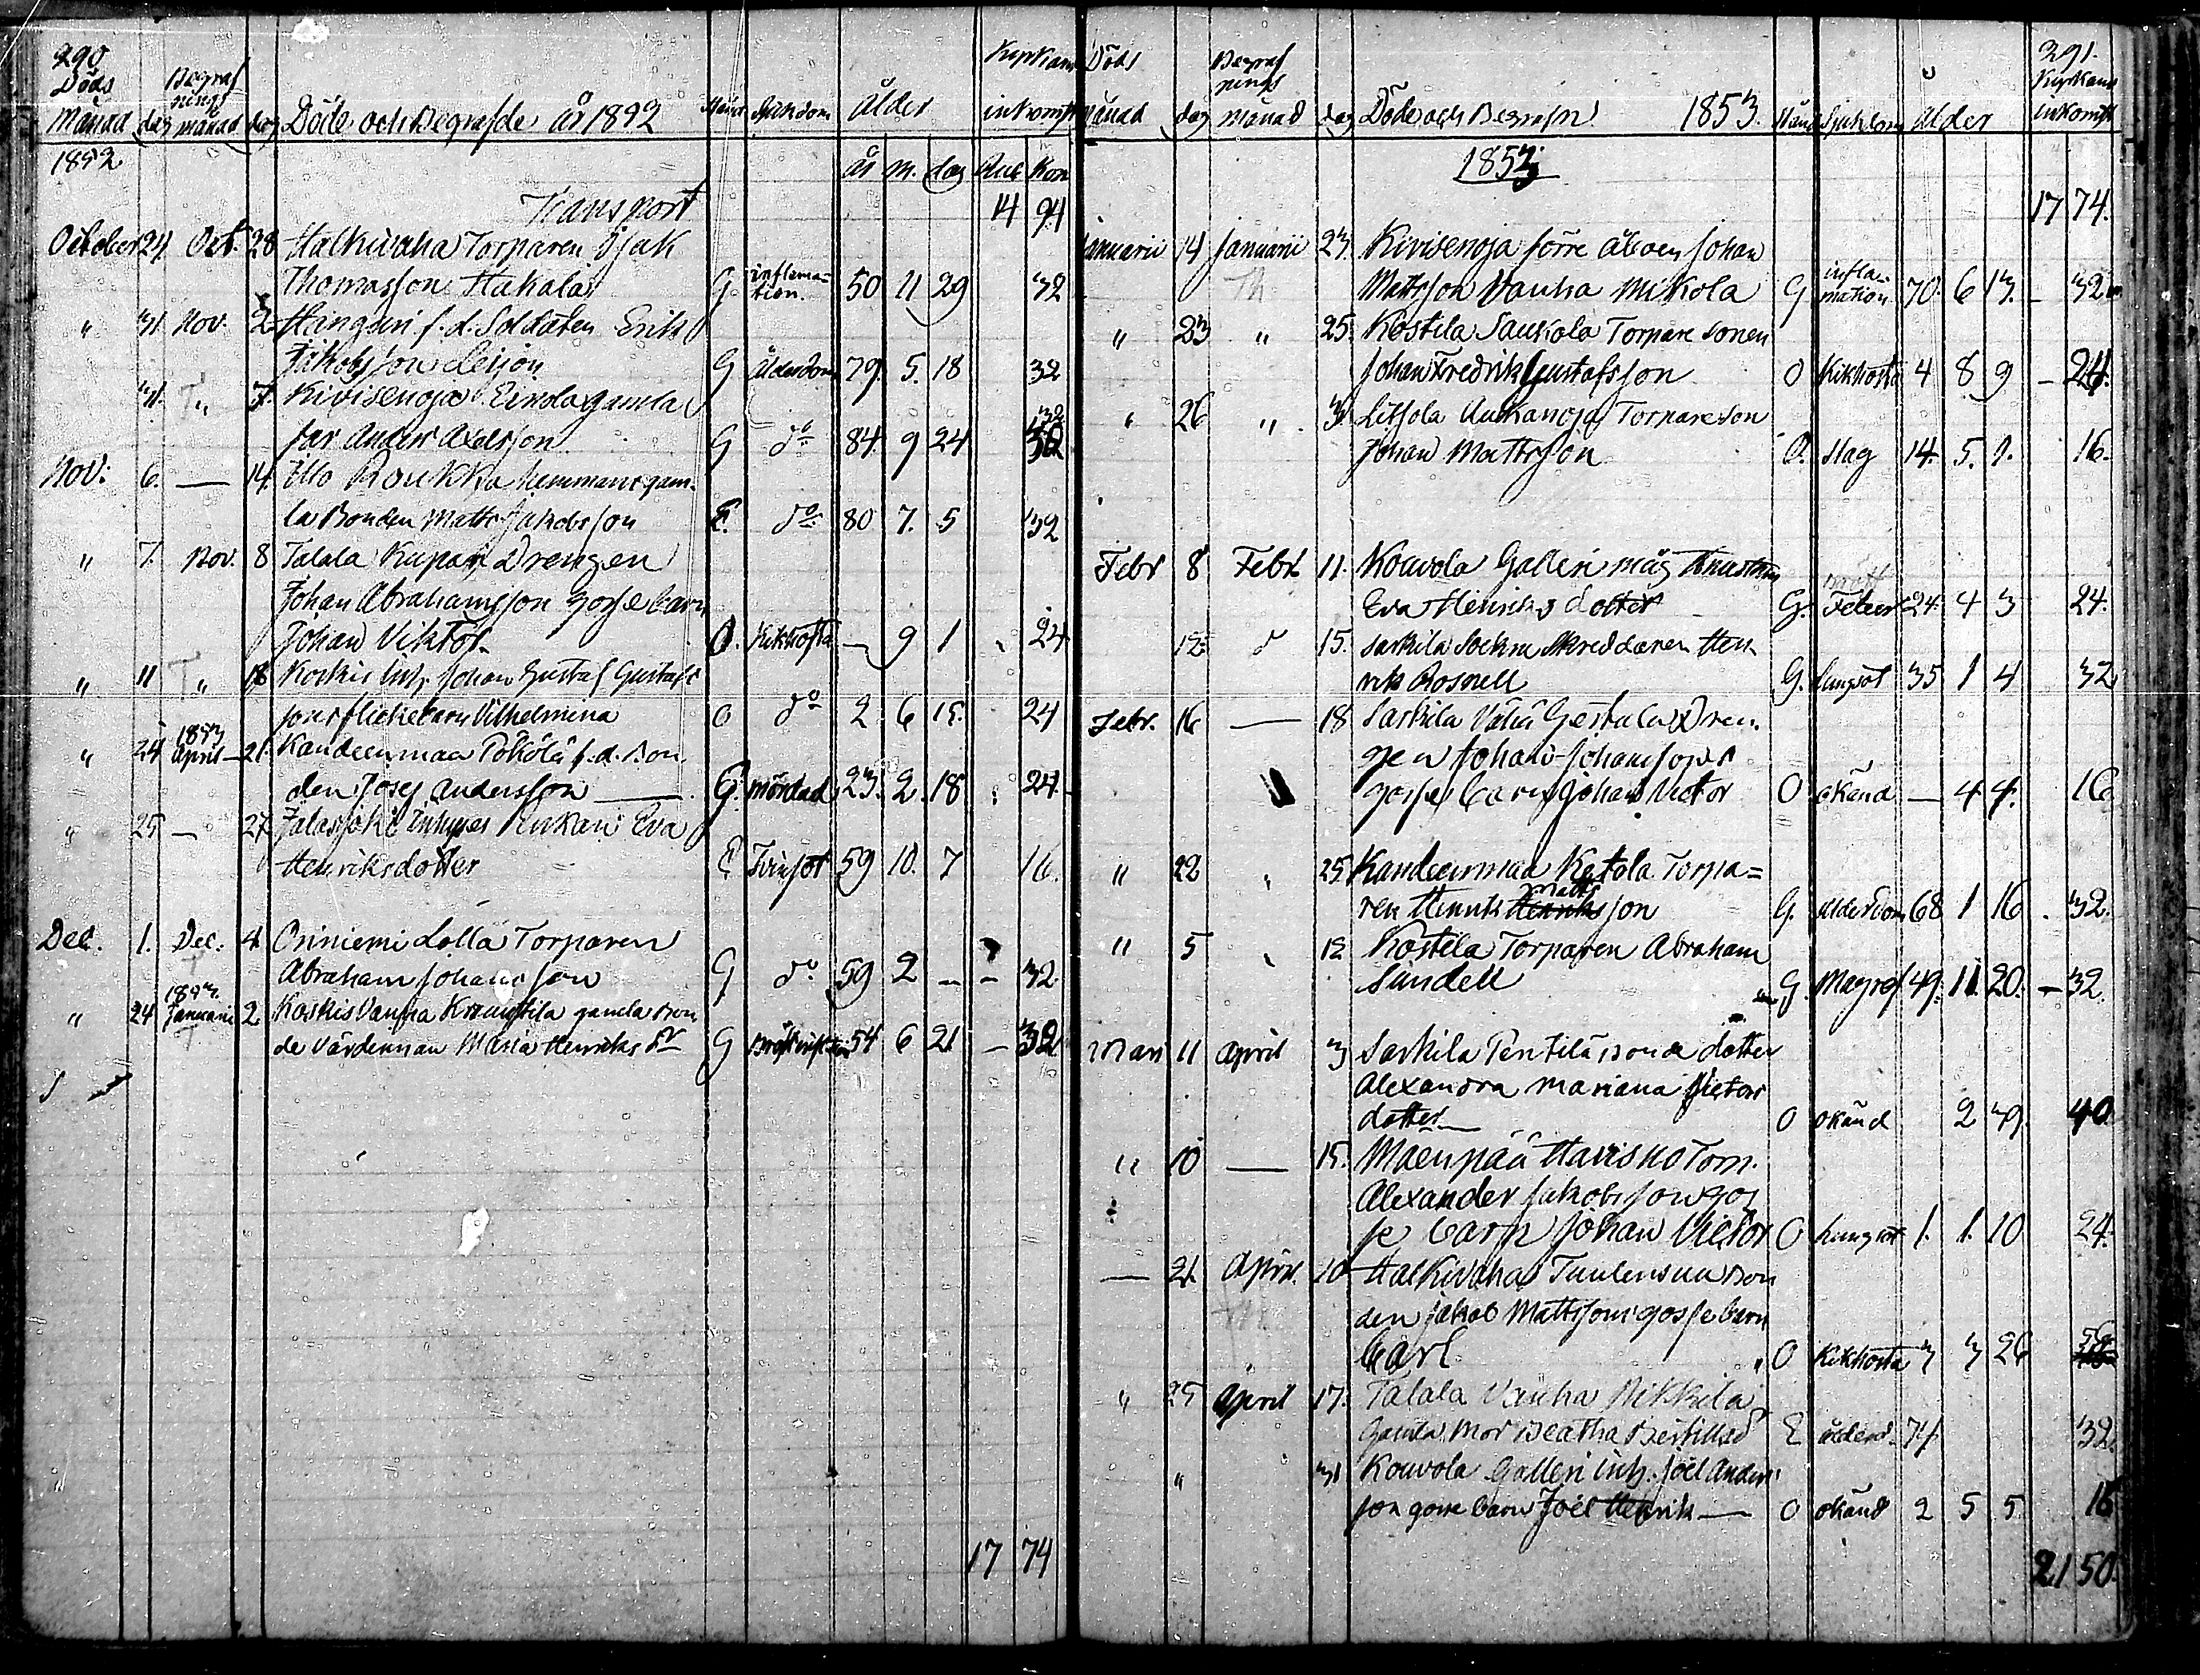 290
Döds Begraf Kyrkans
nings
Månad dag månad dag Döde och Begrafde år 1892 Stånd Sjukdom ålder inkomst
1852 år m. dag Rub Kop
Transport 14 94
October 24 Oct. 28 Halkivaha Torparen Isak
Thomasson Hakala G inflama-tion. 50 11 29 32
" 31 Nov. 2 Hanguri f.d. Soldaten Erik
Jakobsson Leijon G Ålderdom 79. 5. 18 32
31. " 7. Kivisenoja Eirola gamla
far Anders Axelsson G do 84. 9 24 32
Nov: 6. — 14. Illo Roukka hemmans gam-
la Bonden Matts Jakobsson E. do 80 7. 5 32
" 7. Nov. 8 Talala Kupari Drengen
Johan Abrahamsson gossebarn
Johan Viktor O. Kikhosta — 9 1 24
" 11 " 18 Koskis Inh. Johan Gustaf Gustafs
sons flickebarn Vilhelmina O do 2 6 15. 24
" 24 1853 April — 21. Kandeenmaa Pökölä f.d. Bon
den Josef Andersson G. mördad 23. 2. 18 24
" 25 — 27 Jalasjoki Inhyses Enkan Eva
Henriksdotter E Tvinsot 59 10. 7 16.
Dec. 1. Dec. 4. Oriniemi Lolla Torparen
Abraham Johansson G do 59 2 — — 32
" 24 1853. Januari 2 Koskis Vanha Knuutila gamla Bon
de Värdinnan Maria Henriks Dr G 54 6 21 — 32
17 74
291.
Döds Begraf Kyrkans
nings
månad dag Månad dag Döde och Begrafn. 1853. Stånd Sjukdom ålder inkomst
1853
17 74.
Januarii 14 Januarii 23. Kivisenoja förre åboen Johan
Th Mattsson Vanha Mikola G infla-mation 70. 6 13. — 32
" 23 " 25. Kostila Saukola Torpare sonen
Johan Fredrik Gustafsson O Kikhosta 4 8 9 — 24.
" 26 " 3. Litsola Aukanoja Torpareson
Johan Mattsson O. slag 14. 5. 1. 16.
Febr 8 Febr. 11. Kouvola Galleri måg hustrun
Eva Henriks dotter G. Feber 24. 4 3 24.
12. d 15. Sarkila Sockne Skreddaren Hen
rik Rosnell G. Lungsot 35 1 4 32
Febr. 16 — 18 Sarkila Vähä Gestala Dren
gen Johan Johanssons
gosse barn Johan Victor O okänd — 4 4. 16
" 22 " 25 Kandeenmaa Ketola Torpa=
ren Henrik Matts Henriksson G. ålderdom 68 1 16 . 32.
" 5 " 12 Kostila Torparen Abraham
Sundell G. Magref 49. 11. 20. — 32.
Mars 11 April 3 Sarkila Pentilä Bonde dotter
Alexandra Mariana Victors
dotter O okänd 2 29 40
" 10 — 15. Mäenpää Havisko Torp.
Alexander Jakobsson gos
se barn Johan Victor O Lungsot 1. 1. 10 24.
— 21 April. 10 Halkivaha Tuulensuu Bon
den Jakob Mattssons gossebarn
Carl O Kikhosta 3 3 26 56
" 25 April 17. Talala Vanha Nikkila
Gamla Mor Beatha Bertillsd E ålderd. 74. 32
" 31 Kouvola Galleri Inh. Joel Anders
son gosse barn Joel Henrik — O okänd 2 5 5 16
21 50.